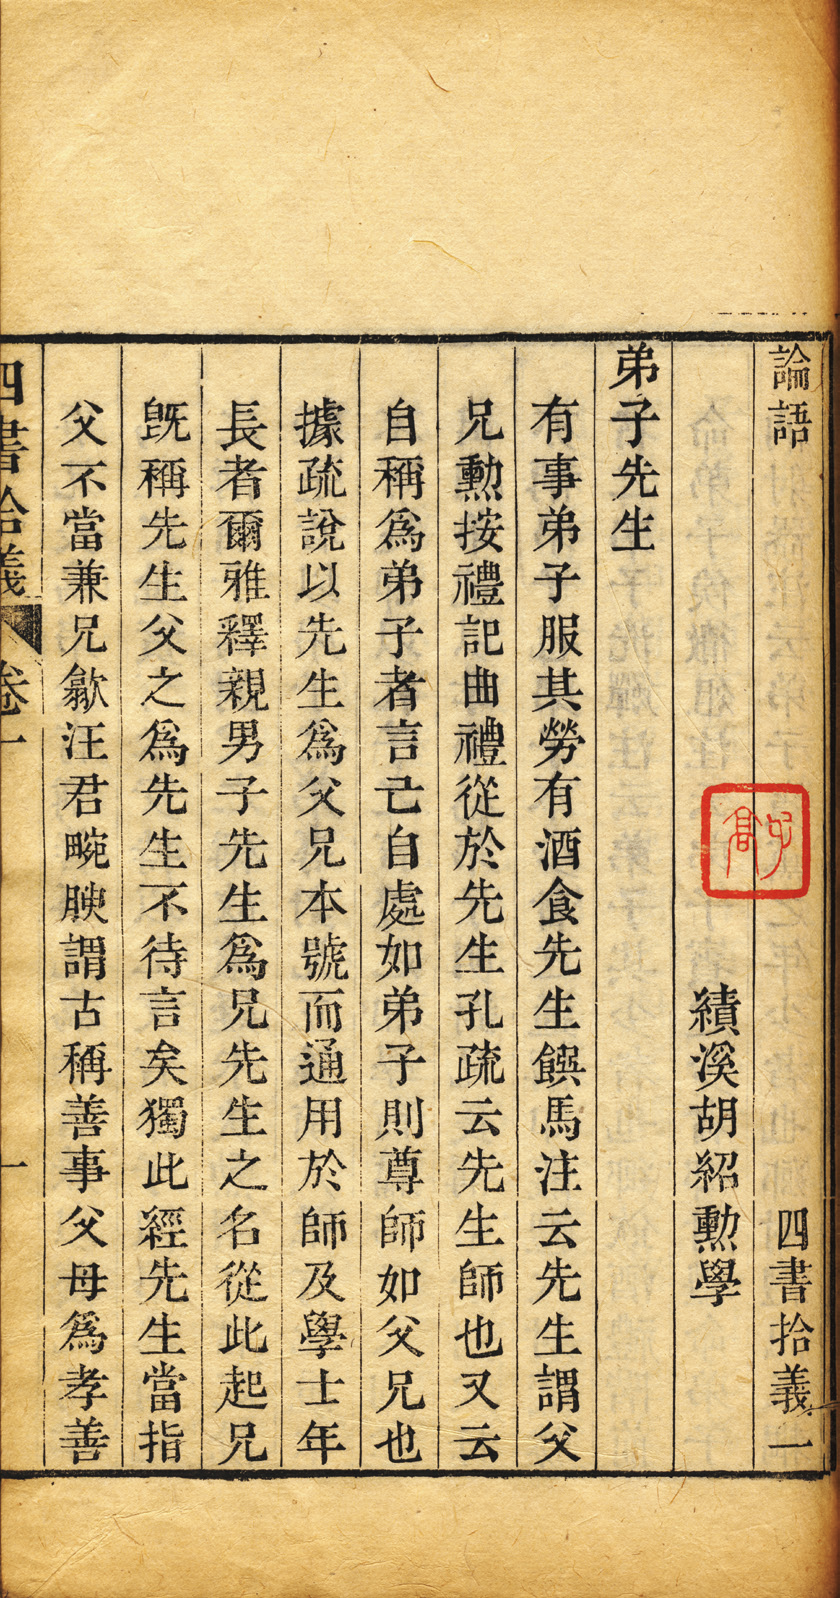 論語 四書拾義一
績溪胡紹勲學
弟子先生
有事弟子服其勞有酒食先生饌馬注云先生謂父
兄勲按禮記曲禮從於先生孔疏云先生師也又云
自稱爲弟子者言己自處如弟子則尊師如父兄也
據疏說以先生爲父兄本號而通用於師及學士年
長者爾雅釋親男子先生爲兄先生之名從此起兄
旣稱先生父之爲先生不待言矣獨此經先生當指
父不當兼兄歙汪君畹腴謂古稱善事父母爲孝善
四書拾義 卷一 一